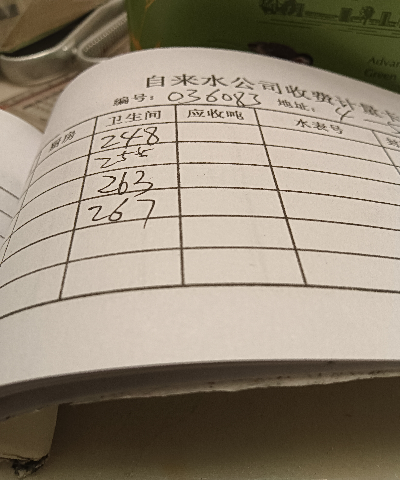 Advan
Green
自来水公司收费计量卡
编号: 036083 地址: 4
厨房 卫生间 应收吨 水表号
248
255
263
267